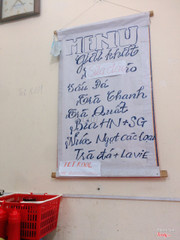 MENU
Giải khát
Sấu Đá
Trà Chanh
Trà Quất
Bia HN + SG
Nước Ngọt các loại
Trà đá + Lavie